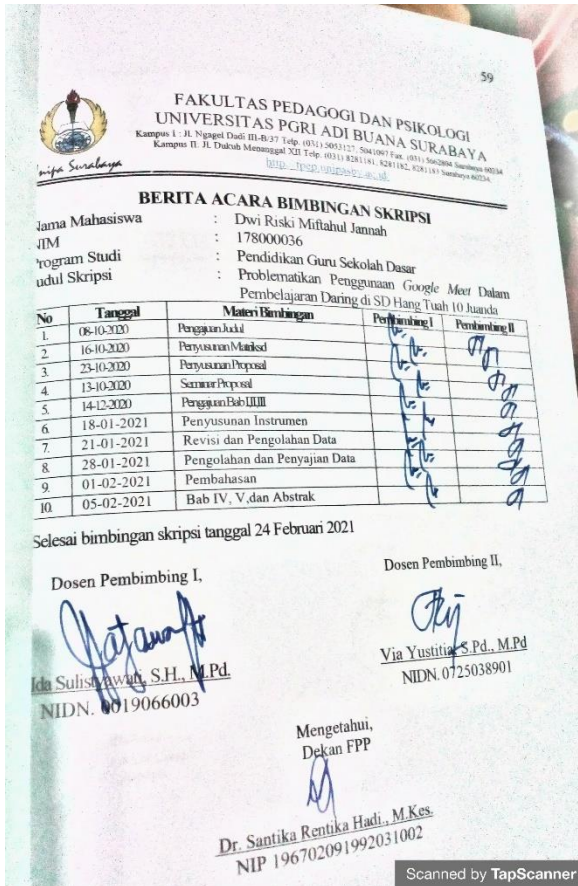 59
FAKULTAS PEDAGOGI DAN PSIKOLOGI
UNIVERSITAS PGRI ADI BUANA SURABAYA
Kampus I : Jl. Ngagel Dadi III-B/37 Telp. (031) 5053127, 5041097 Fax. (031) 5662804 Surabaya 60234
Kampus II. Jl. Dukuh Menanggal XII Telp. (031) 8281181, 8281182, 8281183 Surabaya 60234.
Unipa Surabaya
BERITA ACARA BIMBINGAN SKRIPSI
Nama Mahasiswa : Dwi Riski Miftahul Jannah
NIM : 178000036
Program Studi : Pendidikan Guru Sekolah Dasar
Judul Skripsi : Problematikan Penggunaan Google Meet Dalam
Pembelajaran Daring di SD Hang Tuah 10 Juanda
No Tanggal Materi Bimbingan Pembimbing I Pembimbing II
1. 08-10-2020 Pengajuan Judul
2. 16-10-2020 Penyusunan
3. 23-10-2020 Penyusunan Proposal
4. 13-10-2020 Seminar Proposal
5. 14-12-2020 Pengajuan Bab I,II,III
6. 18-01-2021 Penyusunan Instrumen
7. 21-01-2021 Revisi dan Pengolahan Data
8. 28-01-2021 Pengolahan dan Penyajian Data
9. 01-02-2021 Pembahasan
10. 05-02-2021 Bab IV, V,dan Abstrak
Selesai bimbingan skripsi tanggal 24 Februari 2021
Dosen Pembimbing I,
Ida Sulistyawati, S.H., M.Pd.
NIDN. 0019066003
Dosen Pembimbing II,
Via Yustitia, S.Pd., M.Pd
NIDN. 0725038901
Mengetahui,
Dekan FPP
Dr. Santika Rentika Hadi., M.Kes.
NIP 196702091992031002
Scanned by TapScanner